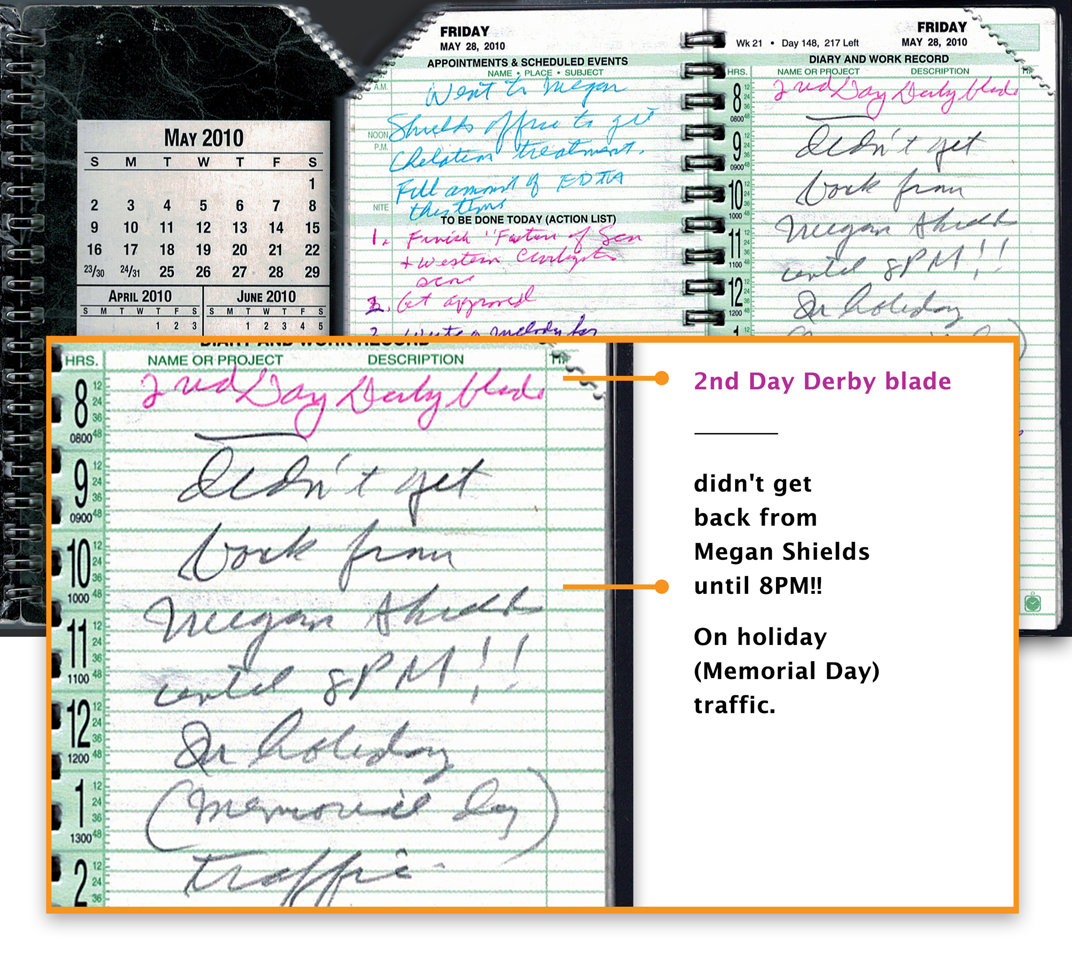 MAY 2010
S M T W T F S
1
2 3 4 5 6 7 8
9 10 11 12 13 14 15
16 17 18 19 20 21 22
23/30 24/31 25 26 27 28 29
APRIL 2010 JUNE 2010
S M T W T F S S M T W T F S
1 2 3 1 2 3 4 5
FRIDAY
MAY 28, 2010
APPOINTMENTS & SCHEDULED EVENTS
NAME • PLACE • SUBJECT
A.M.
Went to Megan
Shields office to get
NOON
P.M.
Chelation treatment.
Full amount of EDTA
NITE
this time
TO BE DONE TODAY (ACTION LIST)
1. Finish
+ Western
score
2. Get approved
Write a melody for
FRIDAY
Wk 21 • Day 148, 217 Left MAY 28, 2010
DIARY AND WORK RECORD
HRS. NAME OR PROJECT DESCRIPTION
8 0800 2nd Day Derby blade
9 0900 didn't get
10 1000 back from
Megan Shields
11 1100 until 8PM!!
12 1200 On holiday
DIARY AND WORK RECORD
HRS. NAME OR PROJECT DESCRIPTION
8 0800 2nd Day Derby blade
9 0900 didn't get
10 1000 back from
Megan Shields
11 1100 until 8PM!!
12 1200 On holiday
1 1300 (Memorial Day)
2 traffic.
2nd Day Derby blade
didn't get
back from
Megan Shields
until 8PM!!
On holiday
(Memorial Day)
traffic.